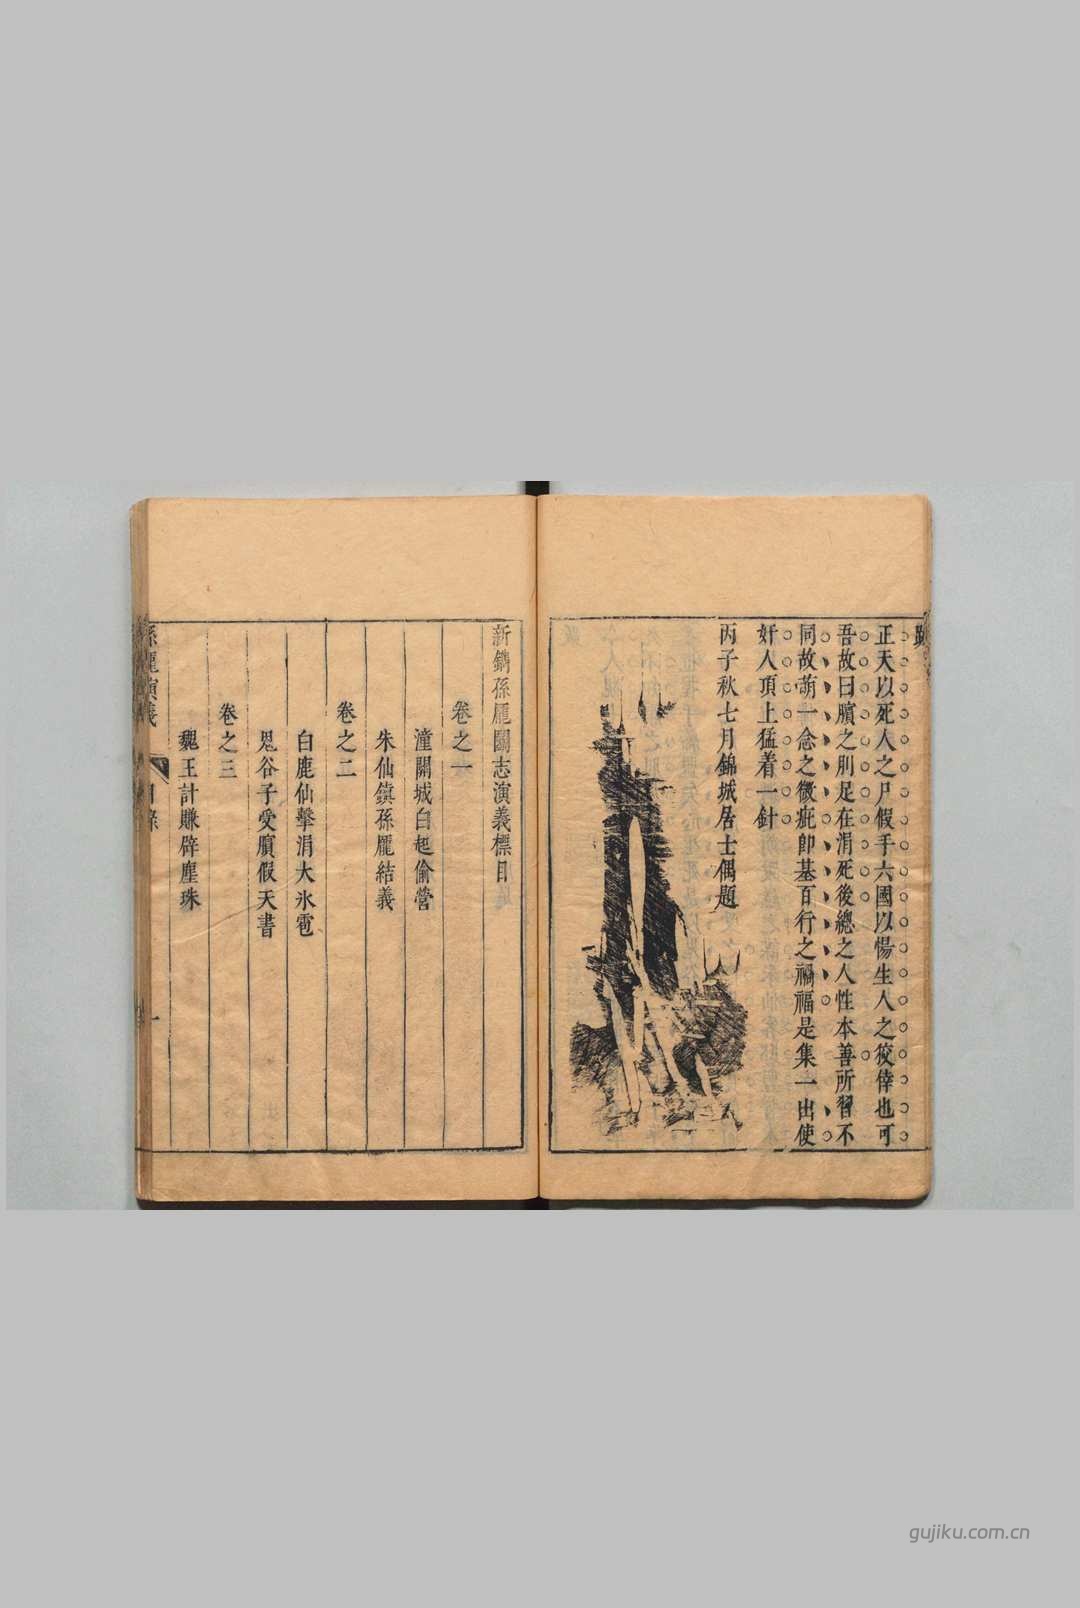 正天以死人之尸假手六國以愓生人之狡倖也可
吾故曰臏之刖足在涓死後總之人性本善所習不
同故萌一念之微疵卽基百行之禍福是集一出使
奸人頂上猛着一針
丙子秋七月錦城居士偶題
新鐫孫龐鬬志演義標目
卷之一
潼關城白起偷營
朱仙鎮孫龐結義
卷之二
白鹿仙擊涓大氷雹
鬼谷子愛臏假天書
卷之三
魏王計賺辟塵珠
孫龐演義
目錄
一
gujiku.com.cn